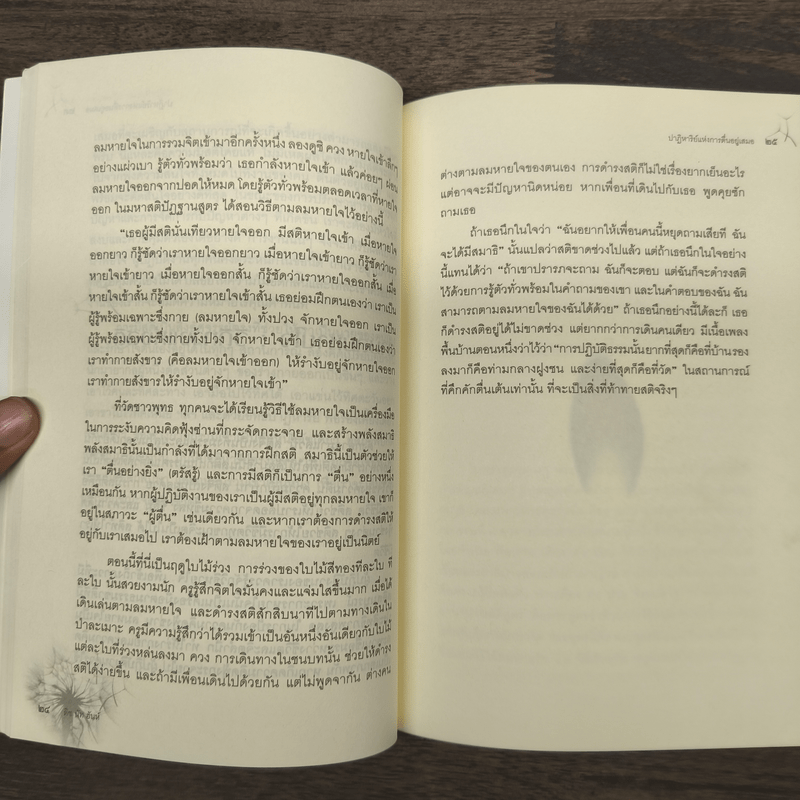 ลมหายใจในการรวมจิตเข้ามาอีกครั้งหนึ่ง ลองดูซิ ควง หายใจเข้าลึกๆ
อย่างแผ่วเบา รู้ตัวทั่วพร้อมว่า เธอกำลังหายใจเข้า แล้วค่อยๆ ผ่อน
ลมหายใจออกจากปอดให้หมด โดยรู้ตัวทั่วพร้อมตลอดเวลาที่หายใจ
ออก ในมหาสติปัฏฐานสูตร ได้สอนวิธีตามลมหายใจไว้อย่างนี้
“เธอผู้มีสตินั่นเทียวหายใจออก มีสติหายใจเข้า เมื่อหายใจ
ออกยาว ก็รู้ชัดว่าเราหายใจออกยาว เมื่อหายใจเข้ายาว ก็รู้ชัดว่าเรา
หายใจเข้ายาว เมื่อหายใจออกสั้น ก็รู้ชัดว่าเราหายใจออกสั้น เมื่อ
หายใจเข้าสั้น ก็รู้ชัดว่าเราหายใจเข้าสั้น เธอย่อมฝึกตนเองว่า เราเป็น
ผู้รู้พร้อมเฉพาะซึ่งกาย (ลมหายใจ) ทั้งปวง จักหายใจออก เราเป็น
ผู้รู้พร้อมเฉพาะซึ่งกายทั้งปวง จักหายใจเข้า เธอย่อมฝึกตนเองว่า
เราทำกายสังขาร (คือลมหายใจเข้าออก) ให้รำงับอยู่จักหายใจออก
เราทำกายสังขารให้รำงับอยู่จักหายใจเข้า”
ที่วัดชาวพุทธ ทุกคนจะได้เรียนรู้วิธีใช้ลมหายใจเป็นเครื่องมือ
ในการระงับความคิดฟุ้งซ่านที่กระจัดกระจาย และสร้างพลังสมาธิ
พลังสมาธินั้นเป็นกำลังที่ได้มาจากการฝึกสติ สมาธินี้เป็นตัวช่วยให้
เรา “ตื่นอย่างยิ่ง” (ตรัสรู้) และการมีสติก็เป็นการ “ตื่น” อย่างหนึ่ง
เหมือนกัน หากผู้ปฏิบัติงานของเราเป็นผู้มีสติอยู่ทุกลมหายใจ เขาก็
อยู่ในสภาวะ “ผู้ตื่น” เช่นเดียวกัน และหากเราต้องการดำรงสติให้
อยู่กับเราเสมอไป เราต้องเฝ้าตามลมหายใจของเราอยู่เป็นนิตย์
ตอนนี้ที่นี่เป็นฤดูใบไม้ร่วง การร่วงของใบไม้สีทองทีละใบ ที
ละใบ นั้นสวยงามนัก ครูรู้สึกจิตใจมั่นคงและแจ่มใสขึ้นมาก เมื่อได้
เดินเล่นตามลมหายใจ และดำรงสติสักสิบนาทีไปตามทางเดินใน
ป่าละเมาะ ครูมีความรู้สึกว่าได้รวมเข้าเป็นอันหนึ่งอันเดียวกับใบไม้
แต่ละใบที่ร่วงหล่นลงมา ควง การเดินทางในชนบทนั้น ช่วยให้ดำรง
สติได้ง่ายขึ้น และถ้ามีเพื่อนเดินไปด้วยกัน แต่ไม่พูดจากัน ต่างคน
๒๔ ติช นัท ฮันห์
ปาฏิหาริย์แห่งการตื่นอยู่เสมอ ๒๕
ต่างตามลมหายใจของตนเอง การดำรงสติก็ไม่ใช่เรื่องยากเย็นอะไร
แต่อาจจะมีปัญหานิดหน่อย หากเพื่อนที่เดินไปกับเธอ พูดคุยซัก
ถามเธอ
ถ้าเธอนึกในใจว่า “ฉันอยากให้เพื่อนคนนี้หยุดถามเสียที ฉัน
จะได้มีสมาธิ” นั้นแปลว่าสติขาดช่วงไปแล้ว แต่ถ้าเธอนึกในใจอย่าง
นี้แทนได้ว่า “ถ้าเขาปรารภจะถาม ฉันก็จะตอบ แต่ฉันก็จะดำรงสติ
ไว้ด้วยการรู้ตัวทั่วพร้อมในคำถามของเขา และในคำตอบของฉัน ฉัน
สามารถตามลมหายใจของฉันได้ด้วย” ถ้าเธอนึกอย่างนี้ได้ละก็ เธอ
ก็ดำรงสติอยู่ได้ไม่ขาดช่วง แต่ยากกว่าการเดินคนเดียว มีเนื้อเพลง
พื้นบ้านตอนหนึ่งว่าไว้ว่า “การปฏิบัติธรรมนั้นยากที่สุดก็คือที่บ้าน รอง
ลงมาก็คือท่ามกลางฝูงชน และง่ายที่สุดก็คือที่วัด” ในสถานการณ์
ที่คึกคักตื่นเต้นเท่านั้น ที่จะเป็นสิ่งที่ท้าทายสติจริงๆ